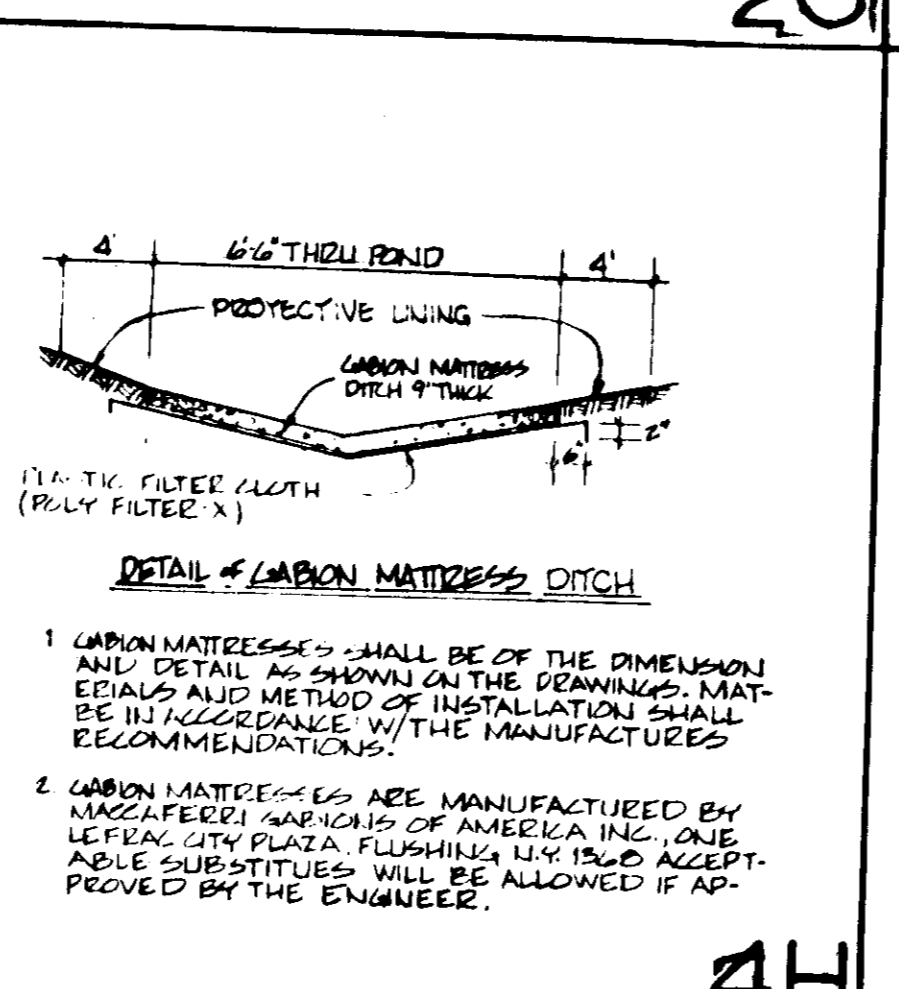 4' 6'-6" THRU POND 4'
PROTECTIVE LINING
GABION MATTRESS
DITCH 9" THICK
2"
6"
FILTER CLOTH
(POLY FILTER X)
DETAIL of GABION MATTRESS DITCH
1 GABION MATTRESSES SHALL BE OF THE DIMENSION
AND DETAIL AS SHOWN ON THE DRAWINGS. MAT-
ERIALS AND METHOD OF INSTALLATION SHALL
BE IN ACCORDANCE W/THE MANUFACTURES
RECOMMENDATIONS.
2. GABION MATTRESSES ARE MANUFACTURED BY
MACCAFERRI GABIONS OF AMERICA INC., ONE
LEFRAC CITY PLAZA. FLUSHING N.Y. 1368 ACCEPT-
ABLE SUBSTITUES WILL BE ALLOWED IF AP-
PROVED BY THE ENGINEER.